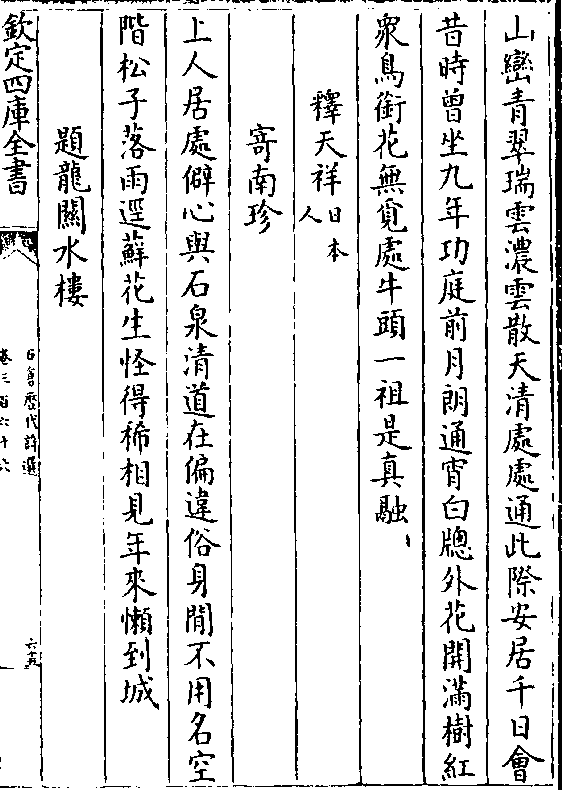 山巒青翠瑞雲濃雲散天清處處通此際安居千日會
昔時曾坐九年功庭前月朗通宵白牕外花開滿樹紅
衆鳥銜花無覓處牛頭一祖是真融
釋天祥日本人
寄南珍
上人居處僻心與石泉清道在偏違俗身閒不用名空
階松子落雨逕蘚花生怪得稀相見年來懶到城
題龍關水樓
欽定四庫全書
御選歷代詩選
卷三百六十六
六五